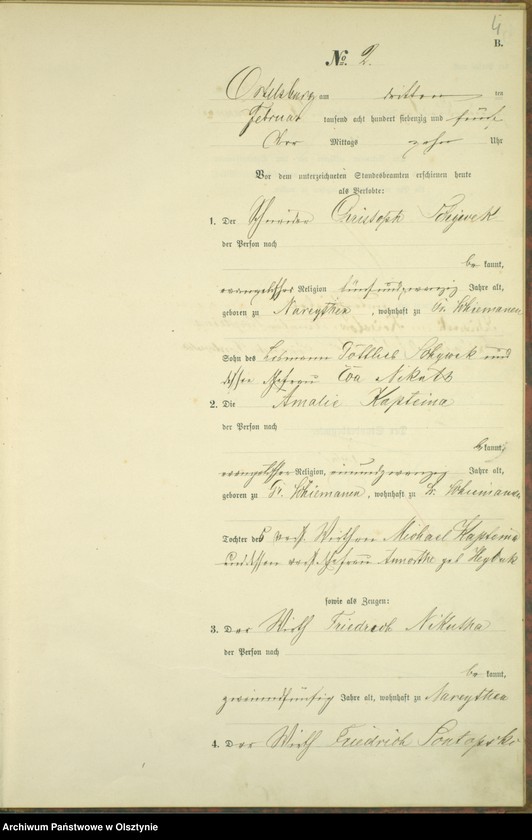 4
B.
No. 2.
Ortelsburg am dritten ten
Februar tausend acht hundert siebenzig und fünf
Vor Mittags zehn Uhr
Vor dem unterzeichneten Standesbeamten erschienen heute
als Verlobte:
1. Der Schneider Christoph
der Person nach
be kannt,
evangelischer Religion fünfundzwanzig Jahre alt,
geboren zu Nareythen, wohnhaft zu Gr. Schiemanen
Sohn des Losmann Gottlieb und
dessen Ehefrau Eva
2. Die Amalie Kapteina
der Person nach
be kannt,
evangelischer Religion, einundzwanzig Jahre alt,
geboren zu Gr. Schiemanen, wohnhaft zu Gr. Schiemanen
Tochter des verst. Michael Kapteina
und dessen verst. Ehefrau geb
sowie als Zeugen:
3. Der Wirth Friedrich Nikutka
der Person nach
be kannt,
zweiundfünfzig Jahre alt, wohnhaft zu Nareythen
4. Der Wirth Friedrich
Archiwum Państwowe w Olsztynie